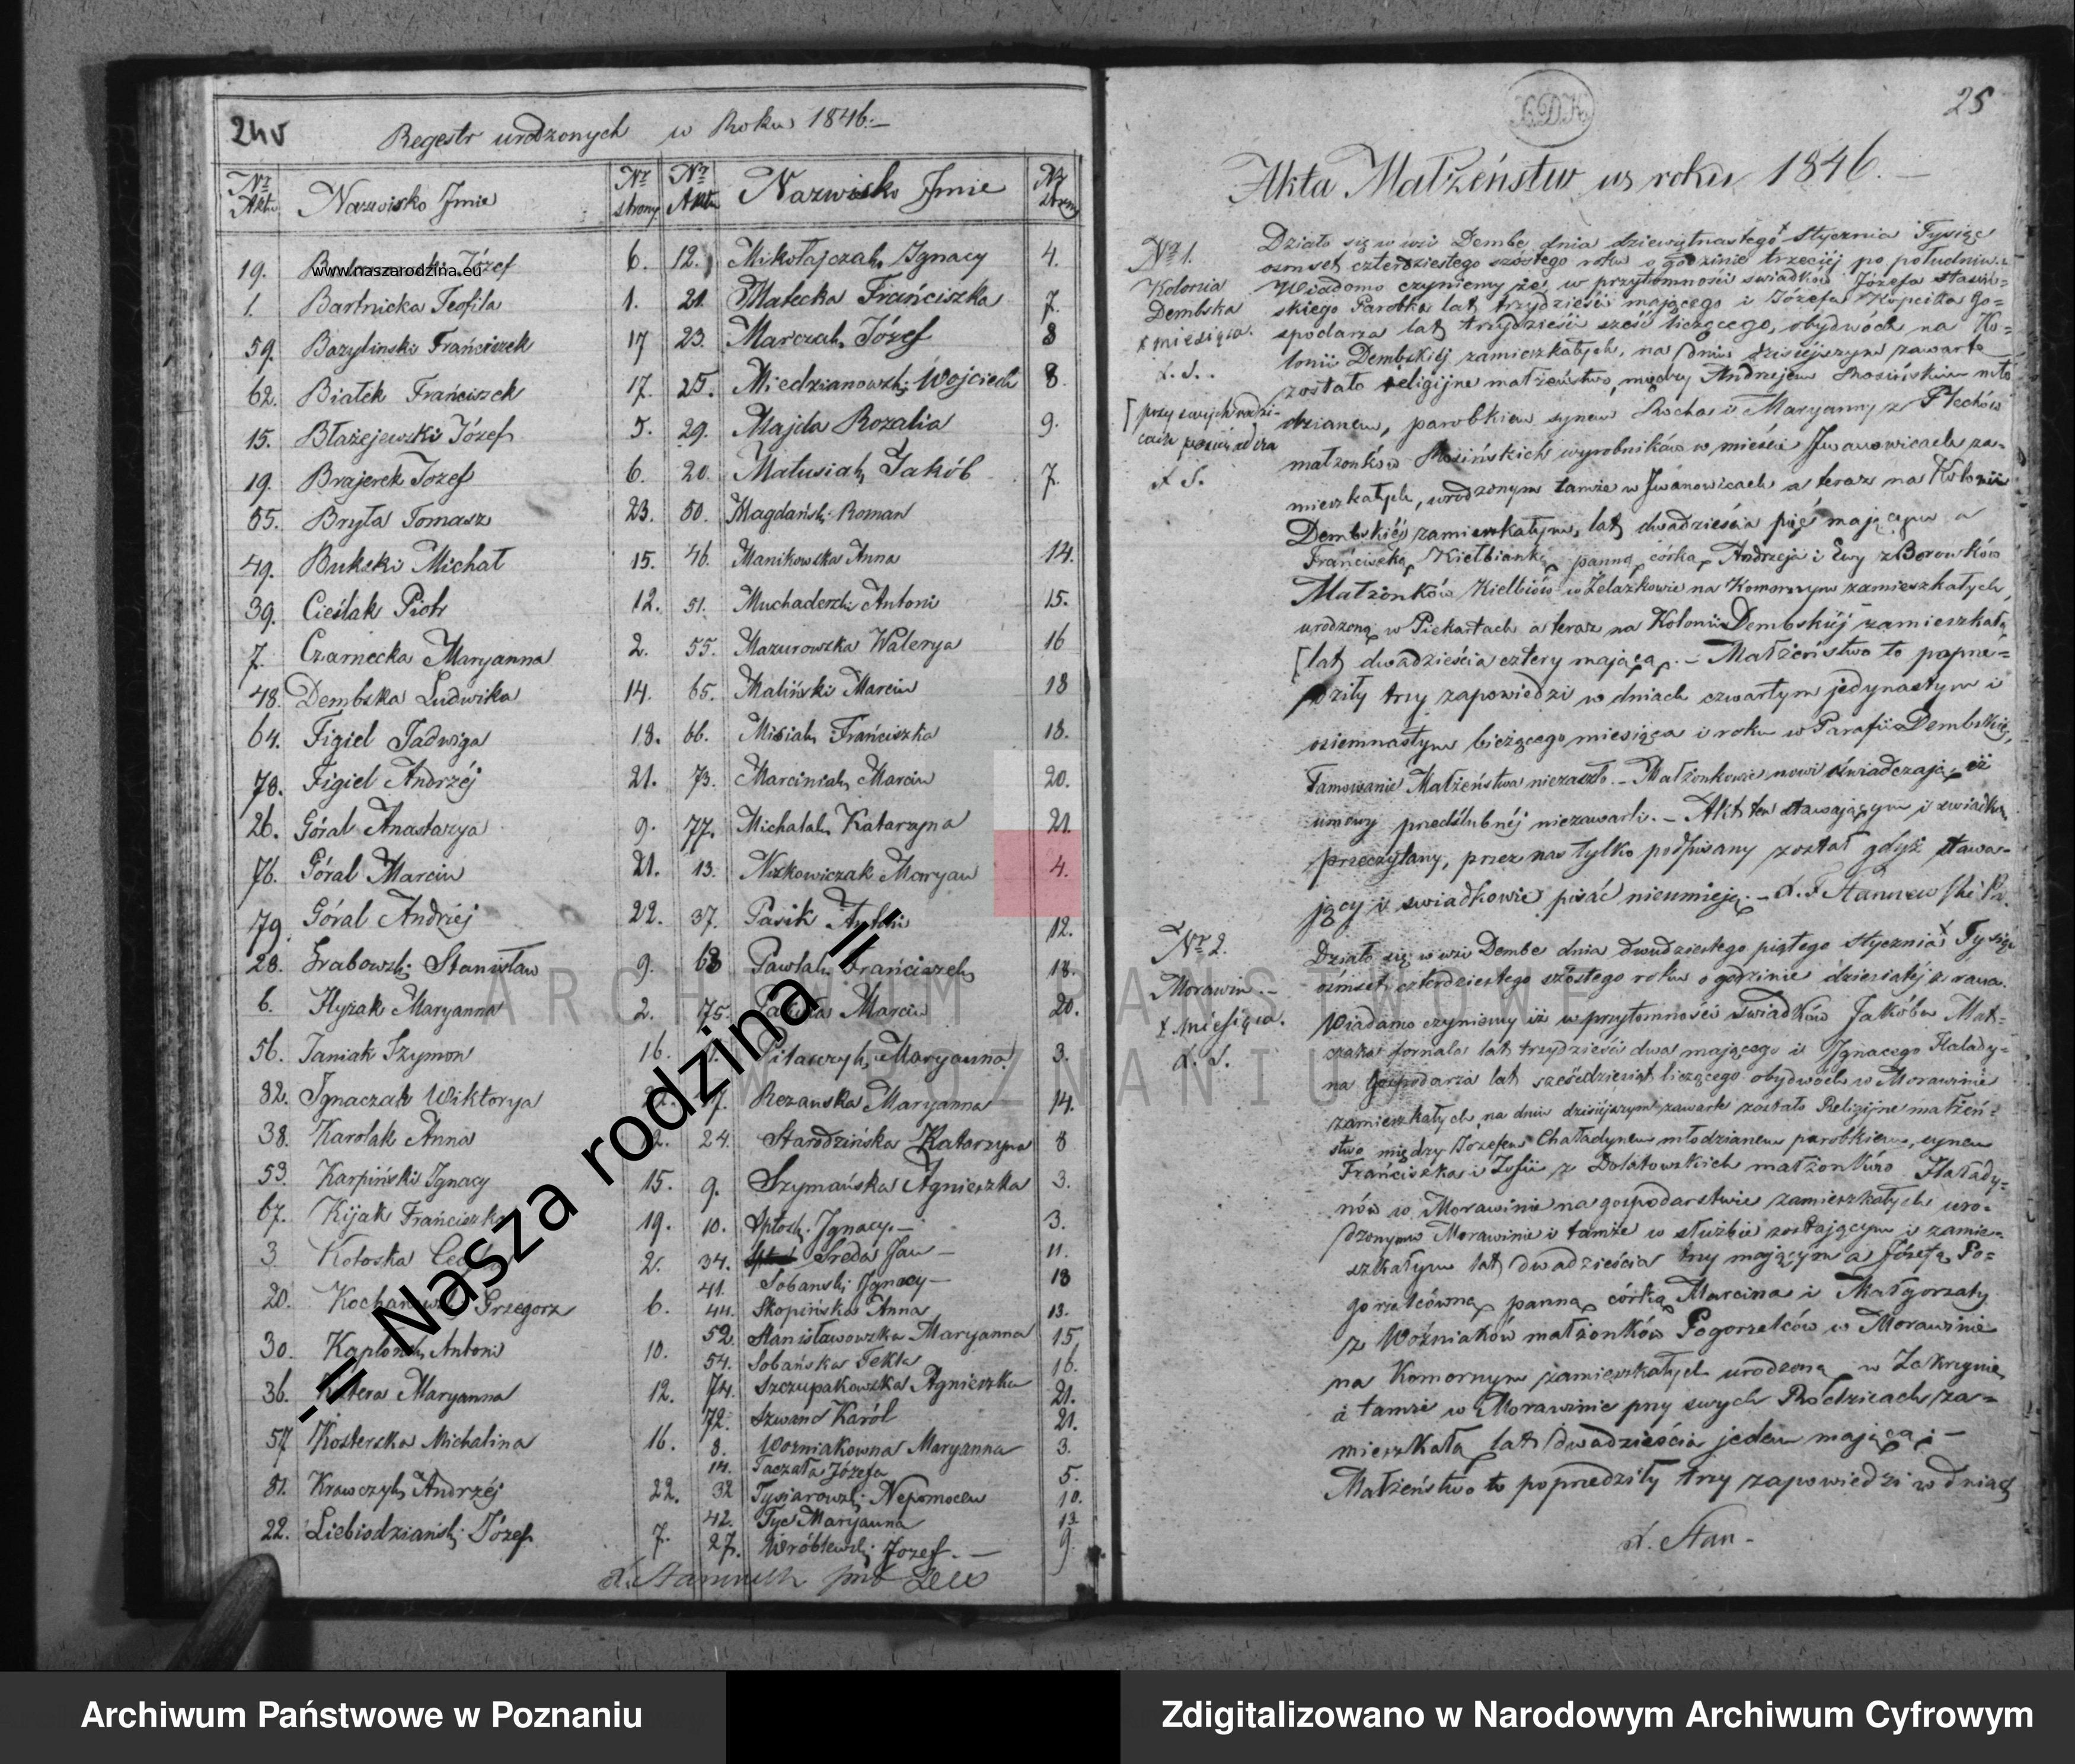 24v
Regestr urodzonych w Roku 1846.
Nr Aktu Nazwisko Jmie Nr strony Nr Aktu Nazwisko Jmie Nr strony
19. Józef 6. 12. Mikołajczak Ignacy 4.
www.naszarodzina.eu
1. Bartnicka Teofila 1. 21. Małecka Frańciszka 7.
59. Bazylinski Frańciszek 17 23. Marczak Józef 8
62. Białek Frańciszek 17. 25. Miedzianowski Wojciech 8.
15. Błażejewski Józef 5. 29. Majda Rozalia 9.
19. Brajerek Jozef 6. 20. Matusiak Jakób 7.
55. Bryła Tomasz 23. 50. Magdański Roman
49. Bukski Michał 15. 46. Manikowska Anna 14.
39. Cieślak Piotr 12. 51. Muchaderski Antoni 15.
7. Czarnecka Maryanna 2. 55. Mazurowska Walerya 16
48. Dembska Ludwika 14. 65. Maliński Marcin 18
64. Figiel Jadwiga 18. 66. Misiak Frańciszka 18.
78. Figiel Andrzéj 21. 73. Marciniak Marcin 20.
26. Góral Anastazya 9. 77. Michalak Katarzyna 21.
76. Góral Marcin 21. 13. Niżkowiczak Maryan 4.
79. Góral Andrzej 22. 37. Pasik 12.
28. Grabowski Stanisław 9. 68 Pawlak Frańciszek 18.
6. Hyżak Maryanna 2. 75. Marcin 20.
56. Janiak Szymon 16. Pitawczyk Maryanna 3.
82. Ignaczak Wiktorya Rezanska Maryanna 14.
38. Karolak Anna 24. Starodzińska Katarzyna 8
53. Karpiński Ignacy 15. 9. Szymańska Agnieszka 3.
67. Kijak Frańciszka 19. 10. Ignacy.— 3.
3. Kotoska 2. 34. Sreda Jan — 11.
41. Sobanski Ignacy— 13
20. Grzegorz 6. 44. Skopińska Anna 13.
52. Stanisławowska Maryanna 15
30. Antoni 10. 54. Sobańska Tekla 16.
36. Maryanna 12. 74. Szczupakowska Agnieszka 21.
72. Szwand Karól 21.
57 Kosterska Michalina 16. 8. Woźniakowna Maryanna 3.
14. Taczała Józefa 5.
81. Krawczyk Andrzéj 22. 32 Tysiarowski Nepomocen 10.
42. Tyc Maryanna 13
22. Liebiodziański Józef 7. 27. Wróblewski Jozef. — 9.
25
Akta Małżeństw w roku 1846. —
Nr 1.
Kolonia
Dembska
x miesiąca.
Działo się w wsi Dembe dnia dziewiętnastego x Stycznia Tysiąc
osmset czterdziestego szóstego roku o godzinie trzeciéj po południu.
Wiadomo czyniemy że w przytomności świadków Józefa Stasiń-
skiego Parobka lat trzydzieści mającego i Józefa Kopcika Go-
spodarza lat trzydzieści sześć liczącego, obydwóch na Ko-
lonii Dembskiéj zamieszkałych, na dniu dzisiejszym zawarte
zostało religijne małżeństwo, między Andrzejem Rosińskim mło
dzianem, parobkiem synem Rocha i Maryanny z Plechów
małżonków Rosińskich wyrobników w mieście Iwanowicach za-
mieszkałych, urodzonym tamże w Iwanowicach a teraz na Kolonii
Dembskiéj zamieszkałym, lat dwadzieścia pięć mającym a
Frańciszką Kiełbianką panną córką Andrzeja i Ewy z Borowków
Małżonków Kiełbiów w Żelazkowie na Komornym zamieszkałych,
urodzoną w Piekartach a teraz na Kolonii Dembskiéj zamieszkałą
[lat dwadzieścia cztery mającą. — Małżeństwo to poprze-
dziły trzy zapowiedzi w dniach czwartym jedynastym i
osiemnastym bieżącego miesiąca i roku w Parafii Dembskiéj,
Tamowanie Małżeństwa niezaszło. — Małżonkowie nowi oświadczają, iż
umowy przedślubnéj niezawarli. — Akt ten stawającym i świadkom
przeczytany, przez nas tylko podpisany został gdyż stawa-
jący i świadkowie pisać nieumieją. —
Nr 2.
Morawin. —
x miesiąca.
Działo się w wsi Dembe dnia dwudziestego piątego Stycznia x Tysiąc
ośmset czterdziestego szóstego roku o godzinie dziesiatéj z rana.
Wiadomo czyniemy iż w przytomności Swiadków Jakóba Mat-
czaka fornala lat trzydzieści dwa mającego i Ignacego Hałady-
na Gospodarza lat sześćdziesiąt liczącego obydwóch w Morawinie
zamieszkałych, na dniu dzisiejszym zawarte zostało Religijne małżeń-
stwo między Jozefem Chaładynem młodzianem parobkiem, synem
Frańciszka i Zofii z Dolatowskich małżonków Hałady-
nów w Morawinie na gospodarstwie zamieszkałych uro-
dzonym w Morawinie i tamże w służbie zostającym i zamie-
szkałym lat dwadzieścia trzy mającym a Józefą Po-
gorzelcówną panną córką Marcina i Małgorzaty
z Woźniaków małżonków Pogorzelców w Morawinie
na Komornym zamieszkałych urodzoną w Zakrzynie
a tamże w Morawinie przy swych Rodzicach za-
mieszkałą lat dwadzieścia jeden mającą. —
Małżeństwo to poprzedziły trzy zapowiedzi w dniach
-= Nasza rodzina =-
ARCHIWUM PAŃSTWOWE
W POZNANIU
Archiwum Państwowe w Poznaniu
Zdigitalizowano w Narodowym Archiwum Cyfrowym